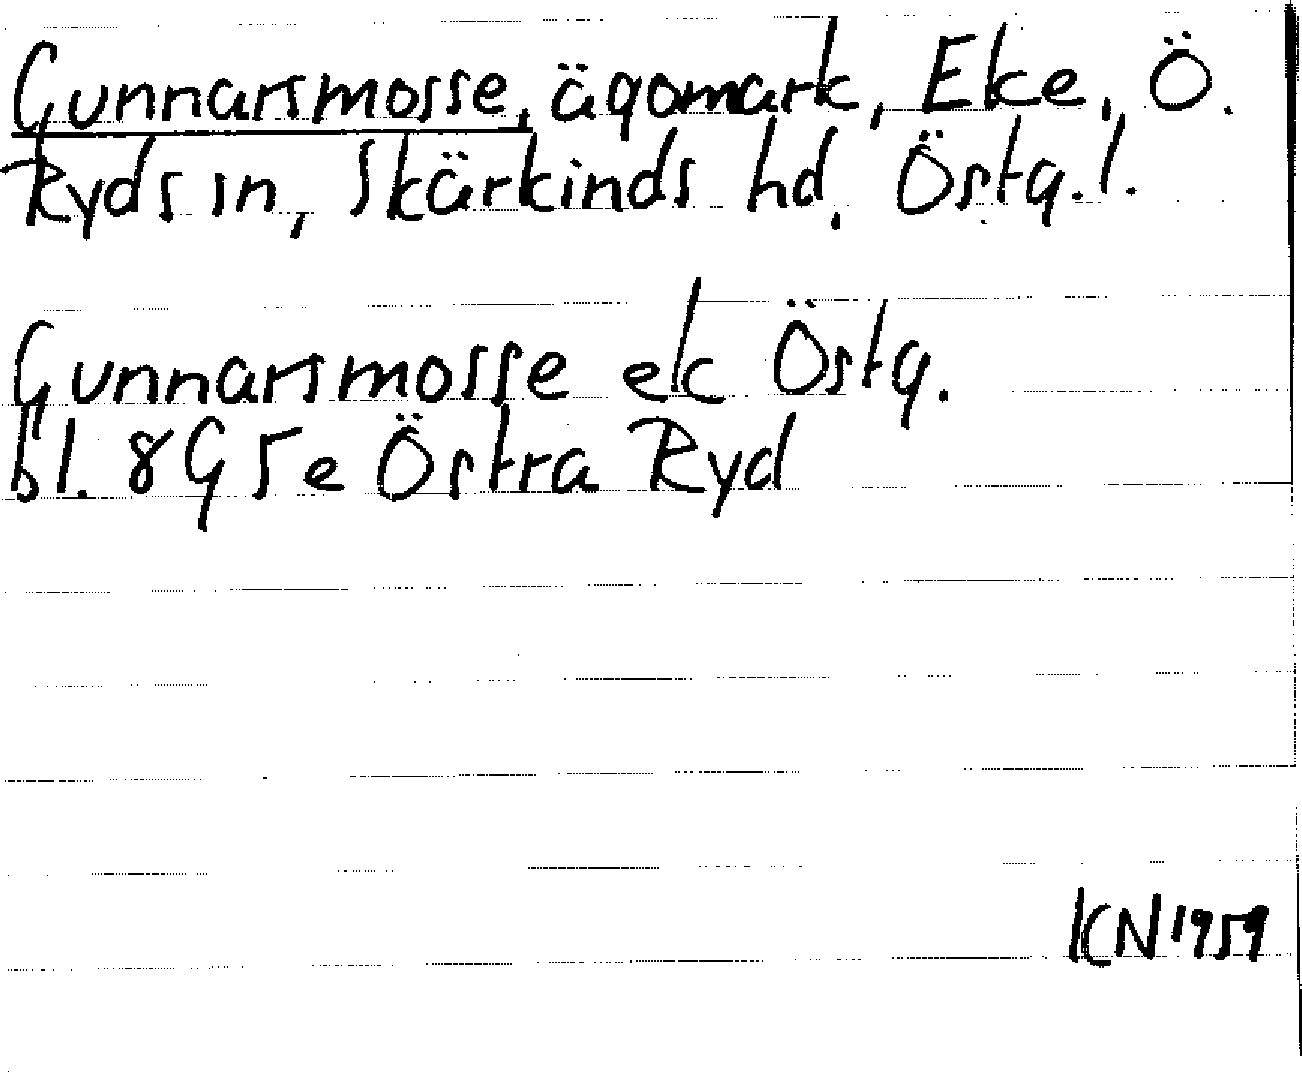 Gunnarsmosse, ägomark, Eke, Ö.
Ryds sn, Skärkinds hd. Östg. l.
Gunnarsmosse ek Östg.
bl. 8G 5e Östra Ryd
KN 1959